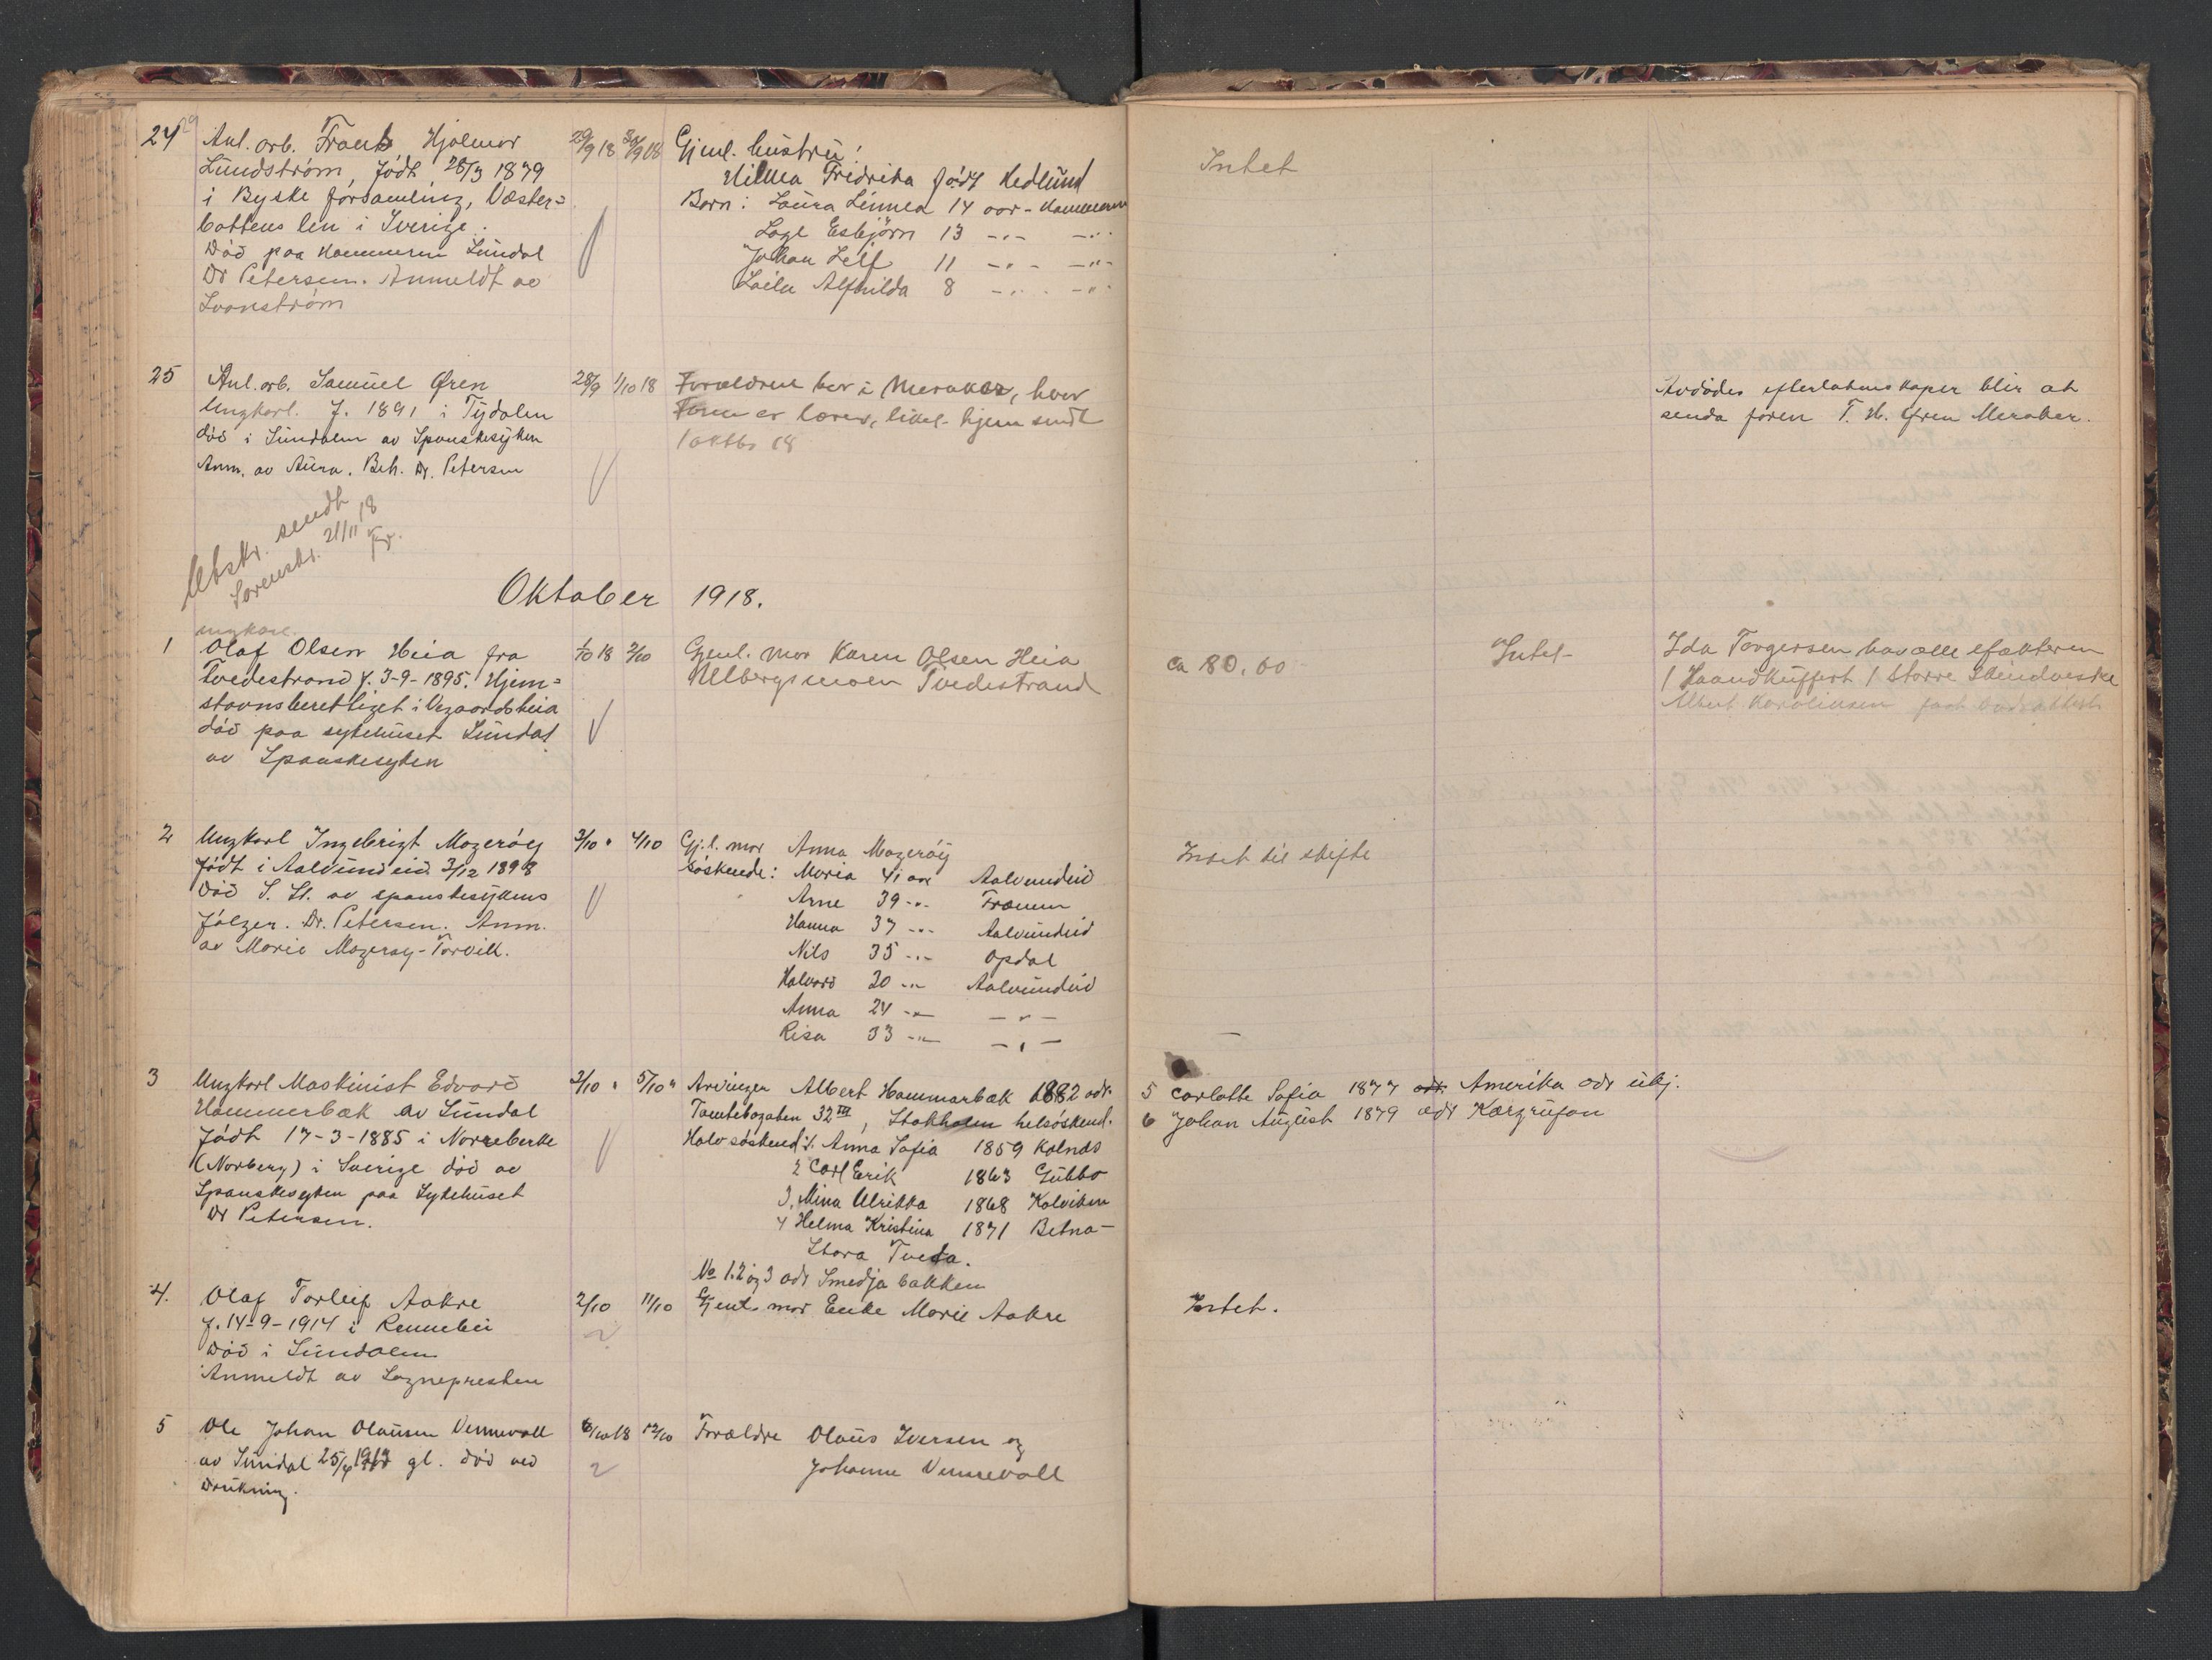 24 Anl. arb. Frants Hjalmar 29/9 18 30/9 18 Gjenl. hustru: Intet
Lundström, født 28/3 1879 Hilma Fredrika født Hedlund
i Byske församling, Væster= Barn: Laura Linnea 14 aar - Kammeren
bottens len i Sverige. Lage Esbjörn 13 -"- -"-
Død paa Kammeren Sundal Johan Leif 11 -"- -"-
Dr Petersen. Anmeldt av Laila Alfhilda 8 -"- -"-
Svanström
25 Anl. arb. Samuel Øren 28/9 1/10 18 Forældrene bor i Meraker, hvor Avdødes efterlatenskaper blir at
Ungkarl. f. 1891 i Tydalen er lærer, liket hjem sendt senda faren T. H. Øren Meraker.
død i Sundalen av Spanskesyken 1 oktbr 18
Anm. av Aura. Beh. Dr. Petersen
Utskr. sendt
Sorenskr. 21/11 18
Oktober 1918.
ungkarl.
1 Olaf Olsen Heia fra 1/10 18 2/10 Gjenl. mor Karen Olsen Heia ca 80.00 Intet- Ida Torgersen har alle efækteren
Tvedestrand f. 3-9-1895. Hjem= Ulbergsmoen Tvedestrand 1 Haandkuffert 1 større Skindveske
stavnsberettiget i Vegaardsheia Albert Karolinsen
død paa sykehuset Sundal
av Spanskesyken
2 Ungkarl Ingebrigt Mogerøy 3/10 " 4/10 Gj.l. mor Anna Mogerøy Intet til skifte
født i Aalvundeid 3/12 1898 søskende: Maria 41 aar Aalvundeid
Død S. St. av spanskesykens Arne 39 -"- Fraenen
følger. Dr. Petersen. Anm. Hanna 37 -"- Aalvundeid
av Marie Mogerøy-Torvik. Nils 35 -"- Opdal
Halvard 30 -"- Aalvundeid
Anna 24 -"- -"-
Risa 33 -"- -"-
3 Ungkarl Maskinist Edvard 3/10 " 5/10 " Arvinger Albert Hammarbæk 1882 adr. 5 Carlotte Sofia 1877 adr. Amerika adr ubj.
Hammerbæk av Sundal Tomtebogaten 32 III, Stokholm helsøskend. 6 Johan August 1879 adr Kærgrufan
født 17-3-1885 i Norreberke Halvsøskend: 1. Anna Sofia 1859 Kolnas
(Norberg) i Sverige død av 2 Carl Erik 1863 Gubbo
Spanskesyken paa Sykehuset 3. Mina Ulrikka 1868 Kolviken
Dr Petersen. 4 Helma Kristina 1871 Betna-
Stora Tveta.
No 1. 2 og 3 adr Smedjabakken
4. Olaf Torleif Aakre 2/10 11/10 Gjenl. mor Enke Marie Aakre Intet.
f. 14-9-1914 i Rennebu
Død i Sundalen
Anmeldt av Sognepresten
5 Ole Johan Olausen Vennevoll 6/10 18 12/10 Forældre Olaus Iversen og
av Sundal 25/4 gl. død ved Johanne Vennevoll
Drukning.